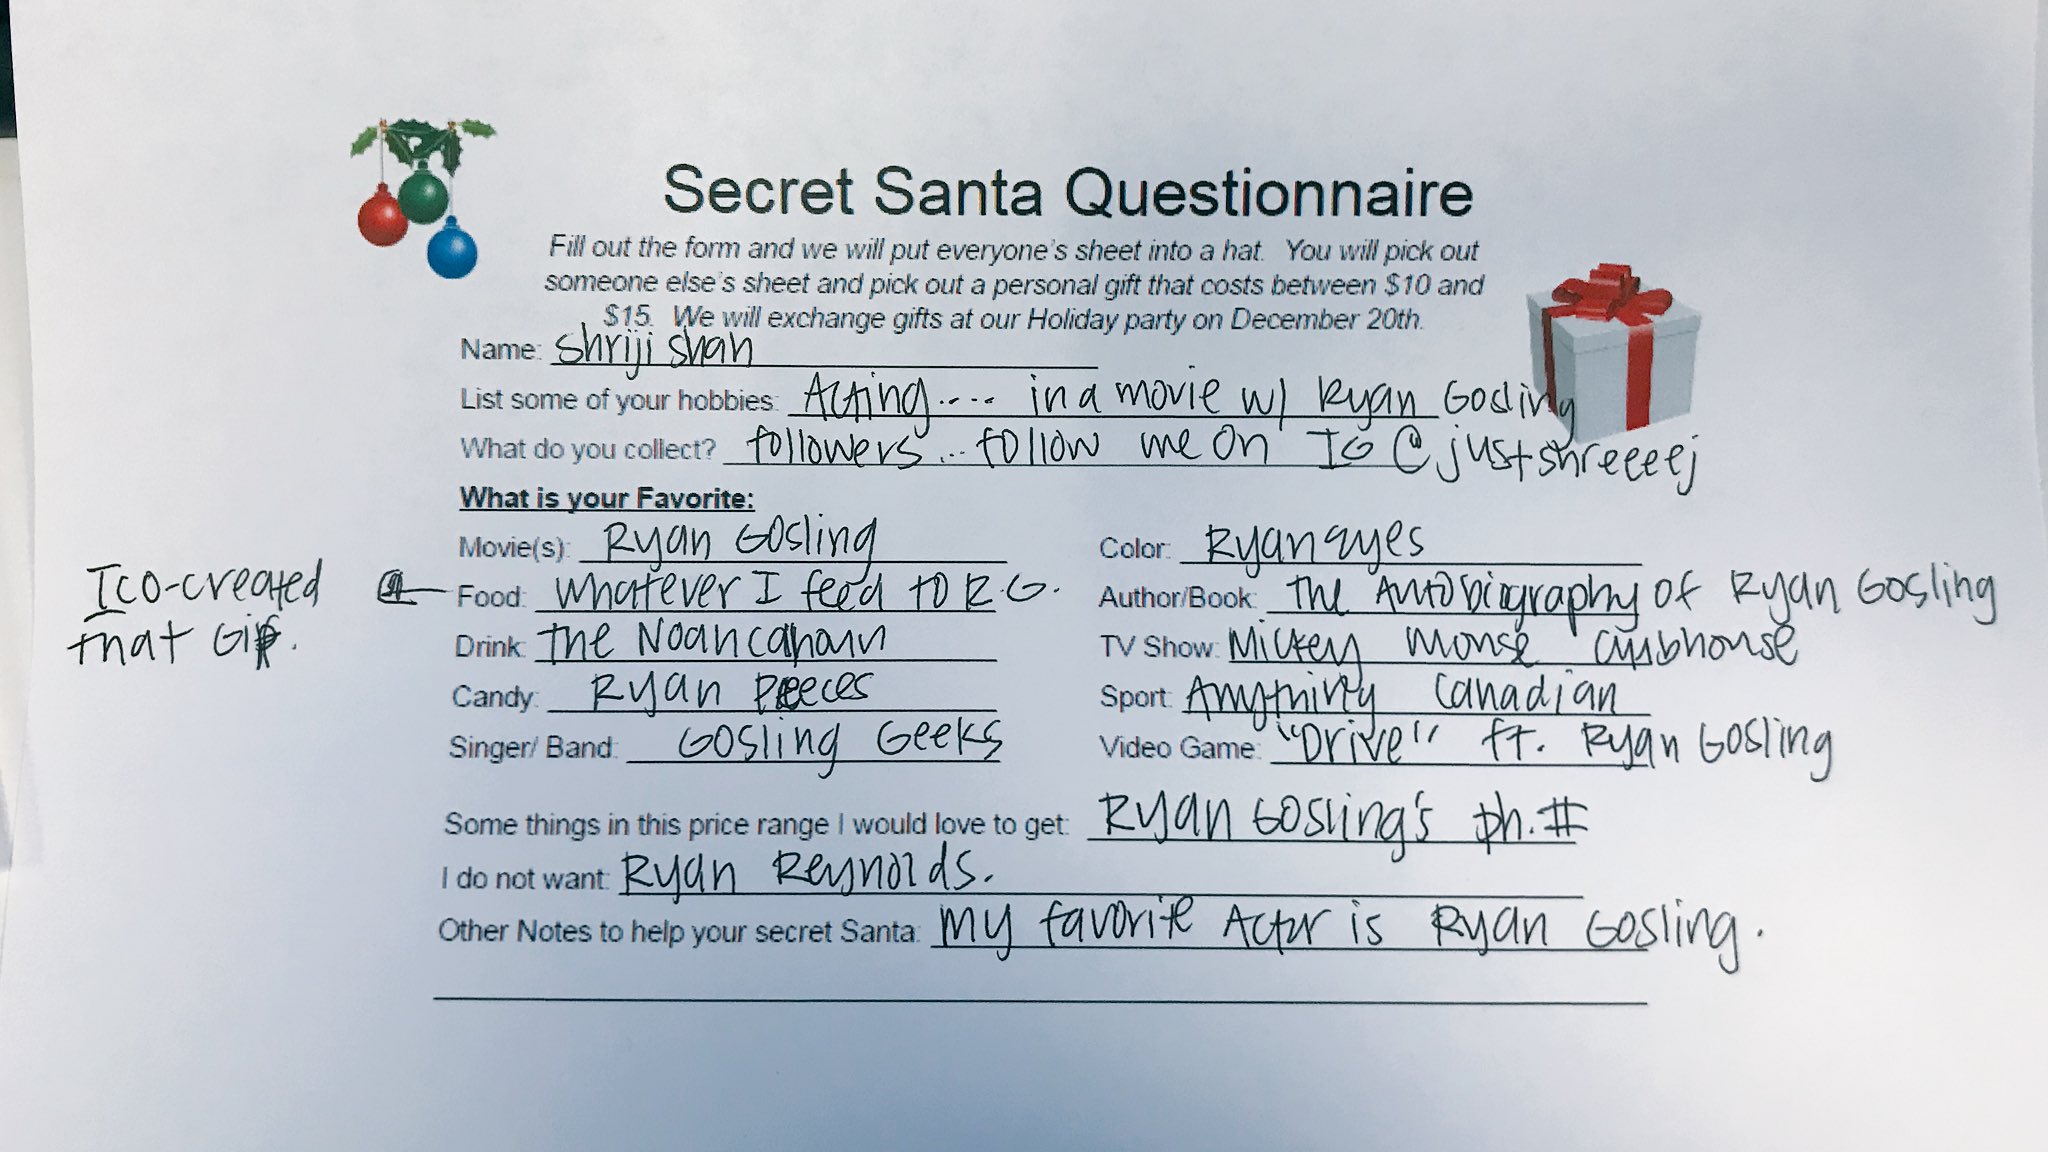 Secret Santa Questionnaire
Fill out the form and we will put everyone's sheet into a hat. You will pick out
someone else's sheet and pick out a personal gift that costs between $10 and
$15. We will exchange gifts at our Holiday party on December 20th.
Name: Shriji Shah
List some of your hobbies: Acting.... in a movie w/ Ryan Gosling
What do you collect? followers... follow me on IG @justshreeeej
What is your Favorite:
Movie(s): Ryan Gosling
Color: Ryan eyes
I co-created
that Gif.
Food: Whatever I feed to R.G.
Author/Book: The Autobiography of Ryan Gosling
Drink: The Noah Cahoun
TV Show: Mickey Mouse Clubhouse
Candy: Ryan Pieces
Sport: Anything Canadian
Singer/ Band: Gosling Geeks
Video Game: "Drive" ft. Ryan Gosling
Some things in this price range I would love to get: Ryan Gosling's ph. #
I do not want: Ryan Reynolds.
Other Notes to help your secret Santa: My favorite Actor is Ryan Gosling.